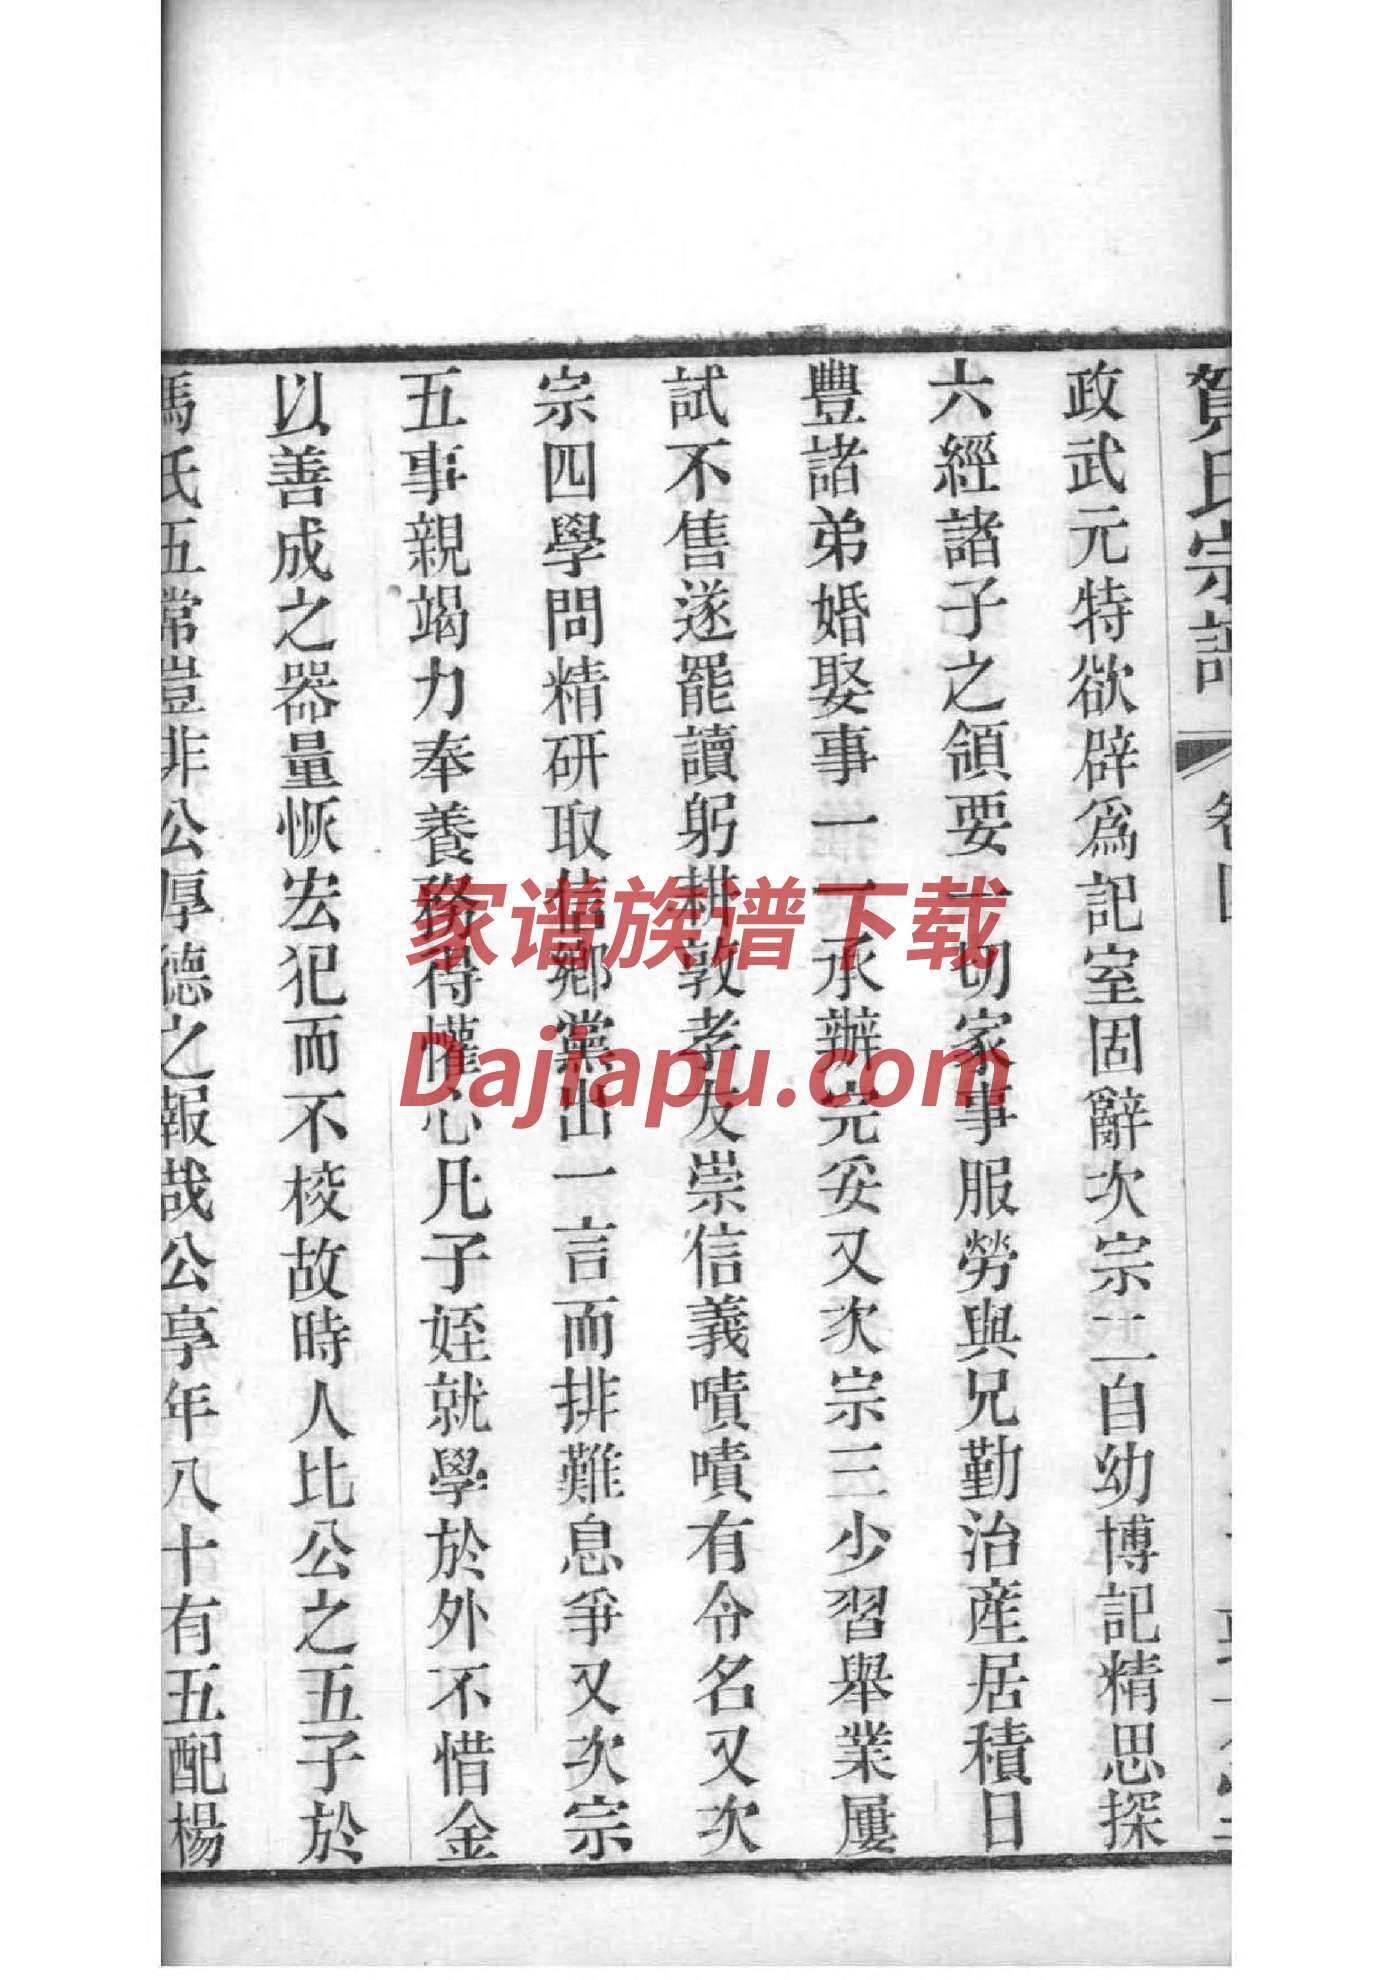 賀氏宗譜 卷四
政武元特欲辟爲記室固辭次宗二自幼博記精思探
六經諸子之領要一切家事服勞與兄勤治産居積日
豐諸弟婚娶事一一承辦完妥又次宗三少習舉業屢
試不售遂罷讀躬耕敦孝友崇信義嘖嘖有令名又次
宗四學問精研取信鄉黨出一言而排難息爭又次宗
五事親竭力奉養務得懽心凡子姪就學於外不惜金
以善成之器量恢宏犯而不校故時人比公之五子於
馮氏五常豈非公厚德之報哉公享年八十有五配楊
家谱族谱下载
Dajiapu.com